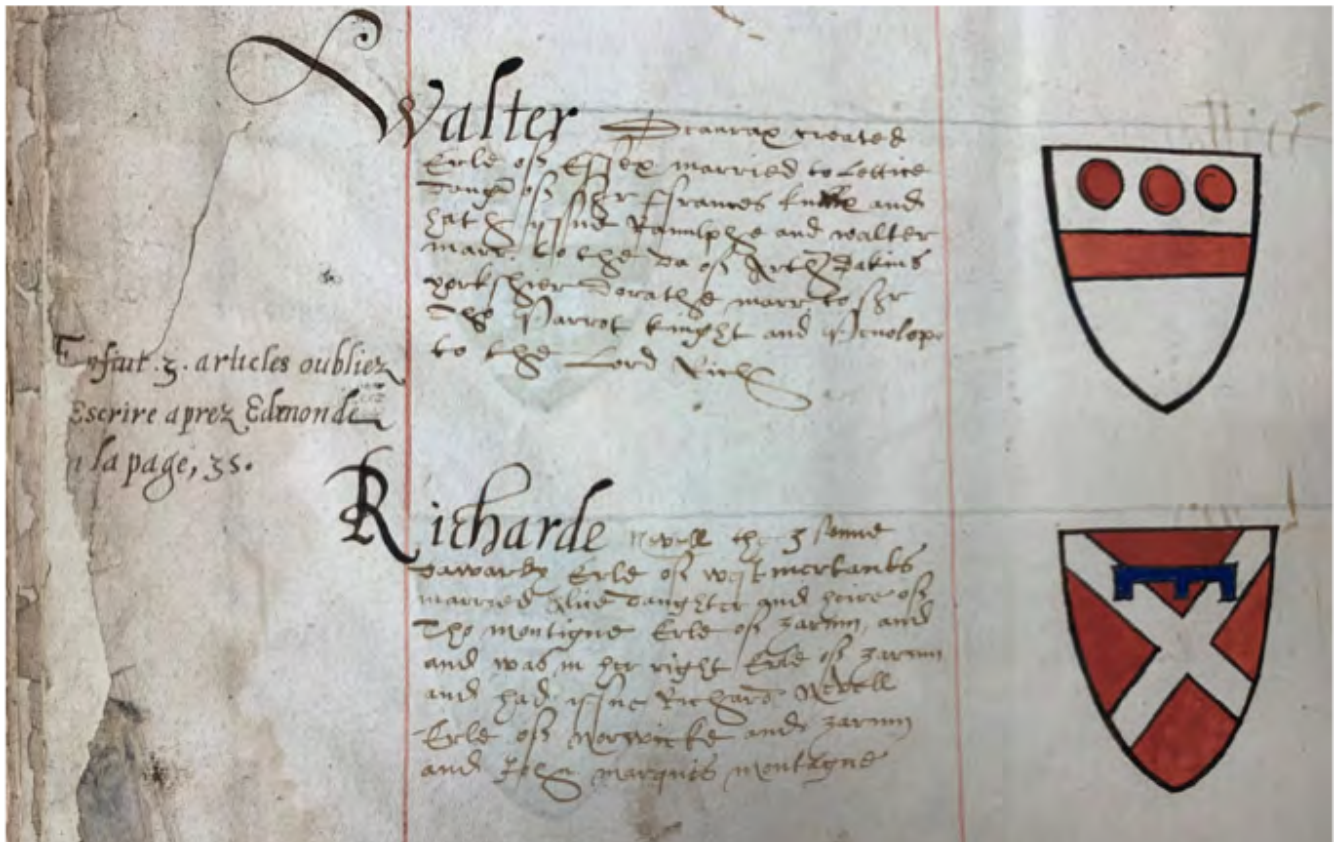 Walter created
Erle off Essex married to Lettice
Daug off Syr ffrances and
hath yssue Ranulphe and walter
marr. to the Da off Arth Dakins
yorkshier Dorathe marr to Syr
Tho Parrot knight and Penelope
to the Lord Rich
Enfaut .3. articles oubliez
Escrire aprez Edmonde
a la page, 35.
Richarde Nevell the 3 sonne
Erle off westmerlande
married Alice Daughter and heire off
Tho montigue Erle off zarum, and
and was in her right Erle off zarum
and had issue Richard Nevell
Erle off Worwicke and zarum
and John marquis montagne